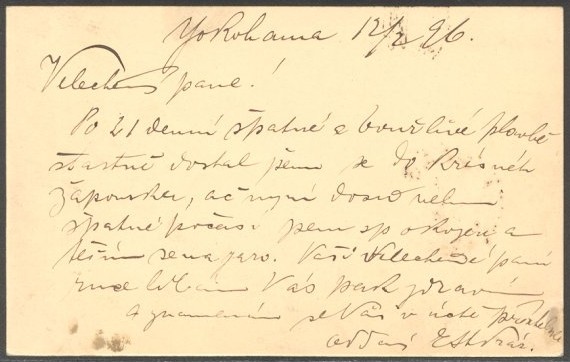 Yokohama 12/2 96.
Velectený pane!
Po 21 denní špatné a bouřlivé plavbě
šťastně dostal jsem se do krásného
Žaponska, ač nyní dosud velmi
špatné počasí jsem spokojen a
těším se na jaro. Vaší Velectěné paní
ruce líbám Vás pak zdravím
a znamenám se Vás v úctě
oddaný